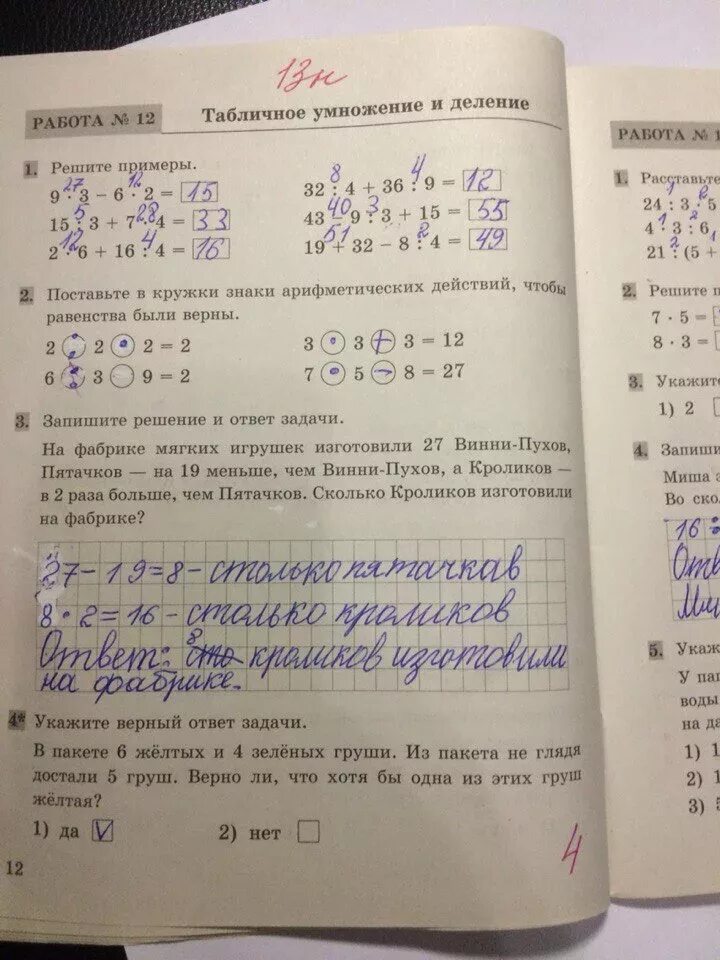 13н
РАБОТА № 12 Табличное умножение и деление
1. Решите примеры.
27 12 8 4
9 · 3 − 6 · 2 = 15 32 : 4 + 36 : 9 = 12
5 28 40 3
15 : 3 + 7 · 4 = 33 43 − 9 : 3 + 15 = 55
12 4 51 2
2 · 6 + 16 : 4 = 16 19 + 32 − 8 : 4 = 49
2. Поставьте в кружки знаки арифметических действий, чтобы
равенства были верны.
2 : 2 · 2 = 2 3 · 3 + 3 = 12
6 : 3 9 = 2 7 · 5 − 8 = 27
3. Запишите решение и ответ задачи.
На фабрике мягких игрушек изготовили 27 Винни-Пухов,
Пятачков — на 19 меньше, чем Винни-Пухов, а Кроликов —
в 2 раза больше, чем Пятачков. Сколько Кроликов изготовили
на фабрике?
27 − 19 = 8 − столько пятачкав
8 · 2 = 16 − столько кроликов
Ответ: 8 кроликов изготовили
на фабрике.
4* Укажите верный ответ задачи.
В пакете 6 жёлтых и 4 зелёных груши. Из пакета не глядя
достали 5 груш. Верно ли, что хотя бы одна из этих груш
жёлтая?
1) да V 2) нет
4
12
РАБОТА №
1. Расставьте
1 2
24 : 3 · 5
1 2
4 · 3 : 6,
2
21 : (5 +
2. Решите
7 · 5 =
8 · 3 =
3. Укажите
1) 2
4.
Миша
Во
16 :
5.
У
воды
на
1)
2)
3)